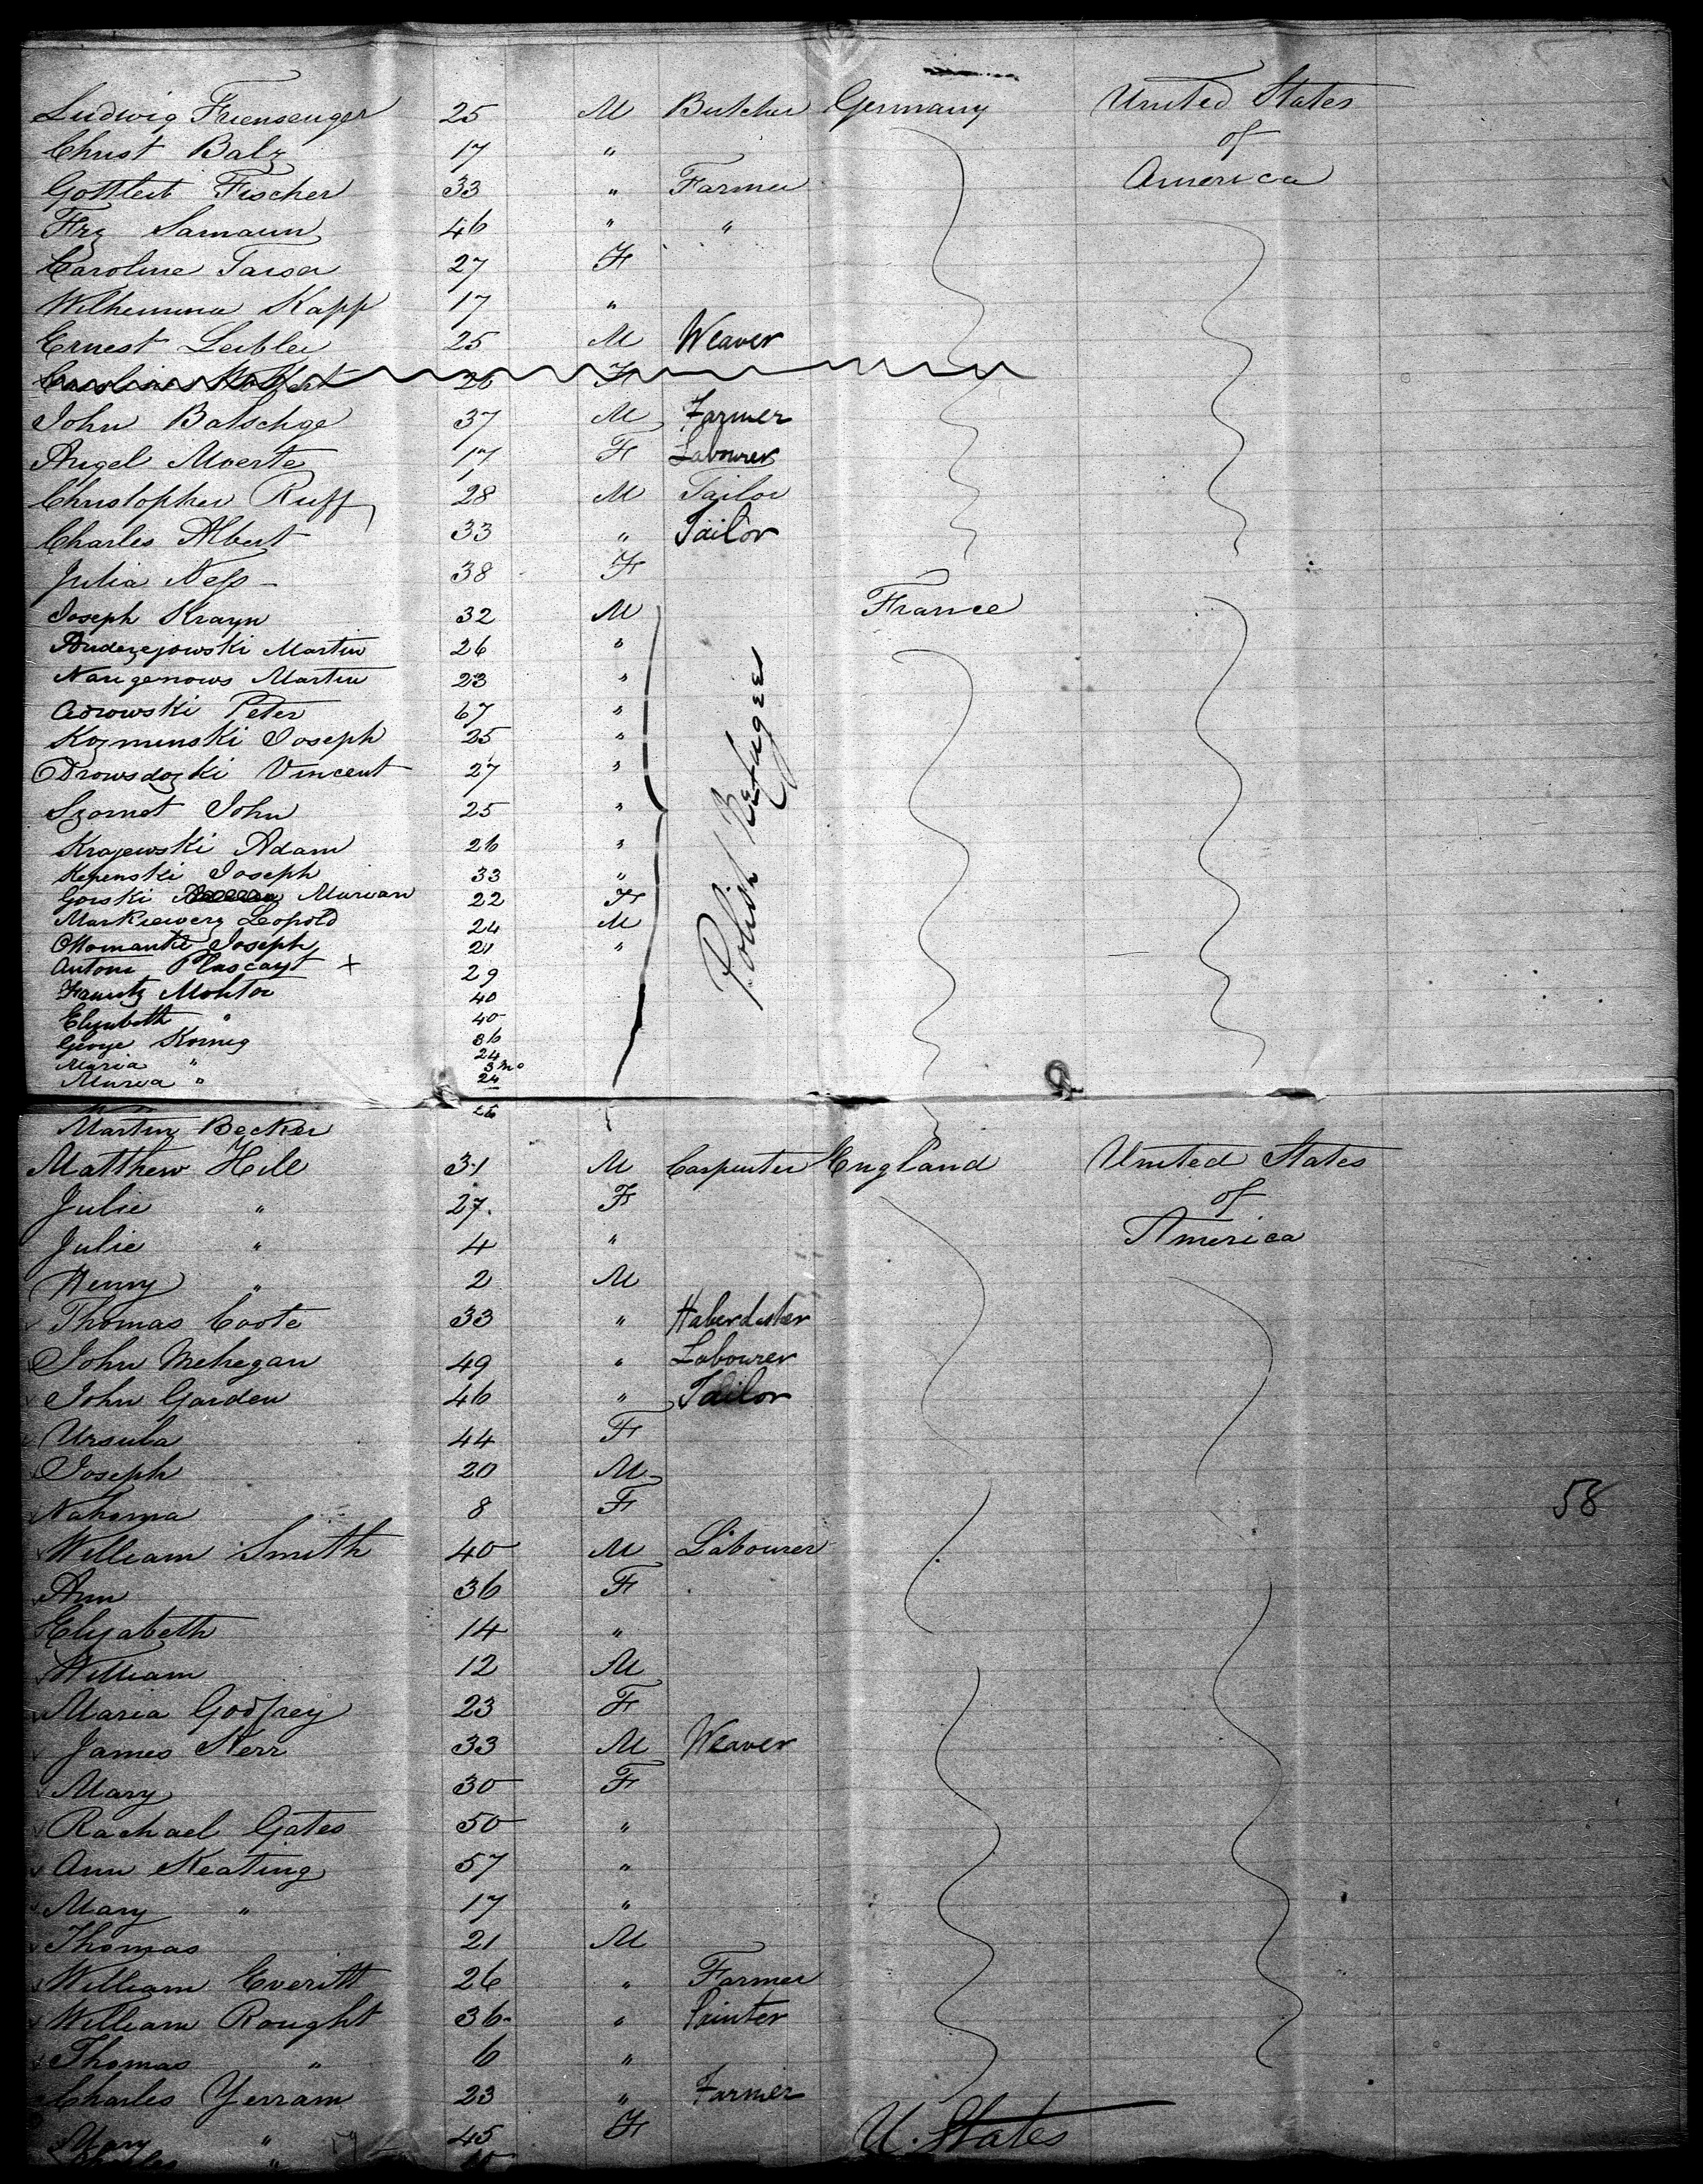 Ludwig Friensenger 25 M Butcher Germany United States
Christ Balz 17 " of
Gottleib Fischer 33 " Farmer America
Frz Samann 46 " "
Caroline 27 F
Wilhemina Kapp 17 "
Ernest Leibler 25 M Weaver
Caroline 26 F
John Batschge 37 M Farmer
Angel Moerte 17 F Labourer
Christopher Ruff 28 M Tailor
Charles Albert 33 " Tailor
Julia Ness 38 F
Joseph Krayn 32 M France
Andezejowski Martin 26 "
Martin 23 "
Peter 67 "
Kozmenski Joseph 25 "
Vincent 27 "
Szornet John 25 "
Krajewski Adam 26 "
Kepenski Joseph 33 "
Gorski Murvan 22 F
Markiewerz Leopold 24 M
Joseph 21 "
Antoni Plascayt + 29
Mohtor 40
Elizabeth " 40
George Konig 36
Maria " 24
3 mo
Murva " 24
Polish Refugees
26
Martin Becker
Matthew Hill 31 M Carpenter England United States
Julie " 27 F of
Julie " 4 " America
Henry " 2 M
Thomas Coote 33 " Haberdasher
John Mehegan 49 " Labourer
John Garden 46 " Tailor
Ursula 44 F
Joseph 20 M
Nahoma 8 F 58
William Smith 40 M Labourer
Ann 36 F
Elizabeth 14 "
William 12 M
Maria Godfrey 23 F
James Kerr 33 M Weaver
Mary 30 F
Rachael Gates 50 "
Ann Keating 57 "
Mary " 17 "
Thomas 21 M
William Everitt 26 " Farmer
William Rought 36 " Painter
Thomas " 6 "
Charles Yerram 23 " Farmer
Mary " 45 F U. States